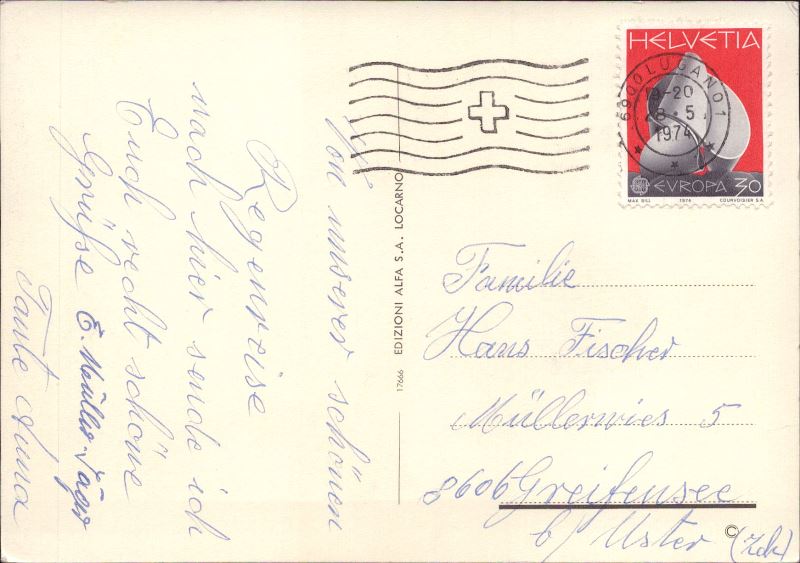 Von unserer schönen
Regenreise
nach hier sende ich
Euch recht schöne
Grüsse E. Müller-Jäger
Tante Anna
17666 EDIZIONI ALFA S.A. LOCARNO
HELVETIA
6900 LUGANO 1
-20
28.5.
1974
EVROPA 30
MAX BILL 1974 COURVOISIER S.A.
Familie
Hans Fischer
Müllerwies 5
8606 Greifensee
b/ Uster (Zch)
©